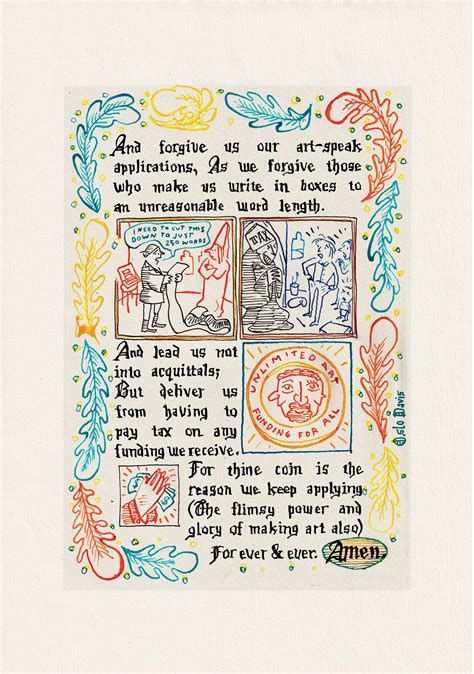 And forgive us our art-speak
applications, As we forgive those
who make us write in boxes to
an unreasonable word length.
I NEED TO CUT THIS
DOWN TO JUST
250 WORDS
TAX
And lead us not
into acquittals;
But deliver us
from having to
pay tax on any
funding we receive.
UNLIMITED ART
FUNDING FOR ALL
Oslo Davis
For thine coin is the
reason we keep applying,
(The flimsy power and
glory of making art also)
For ever & ever. Amen.